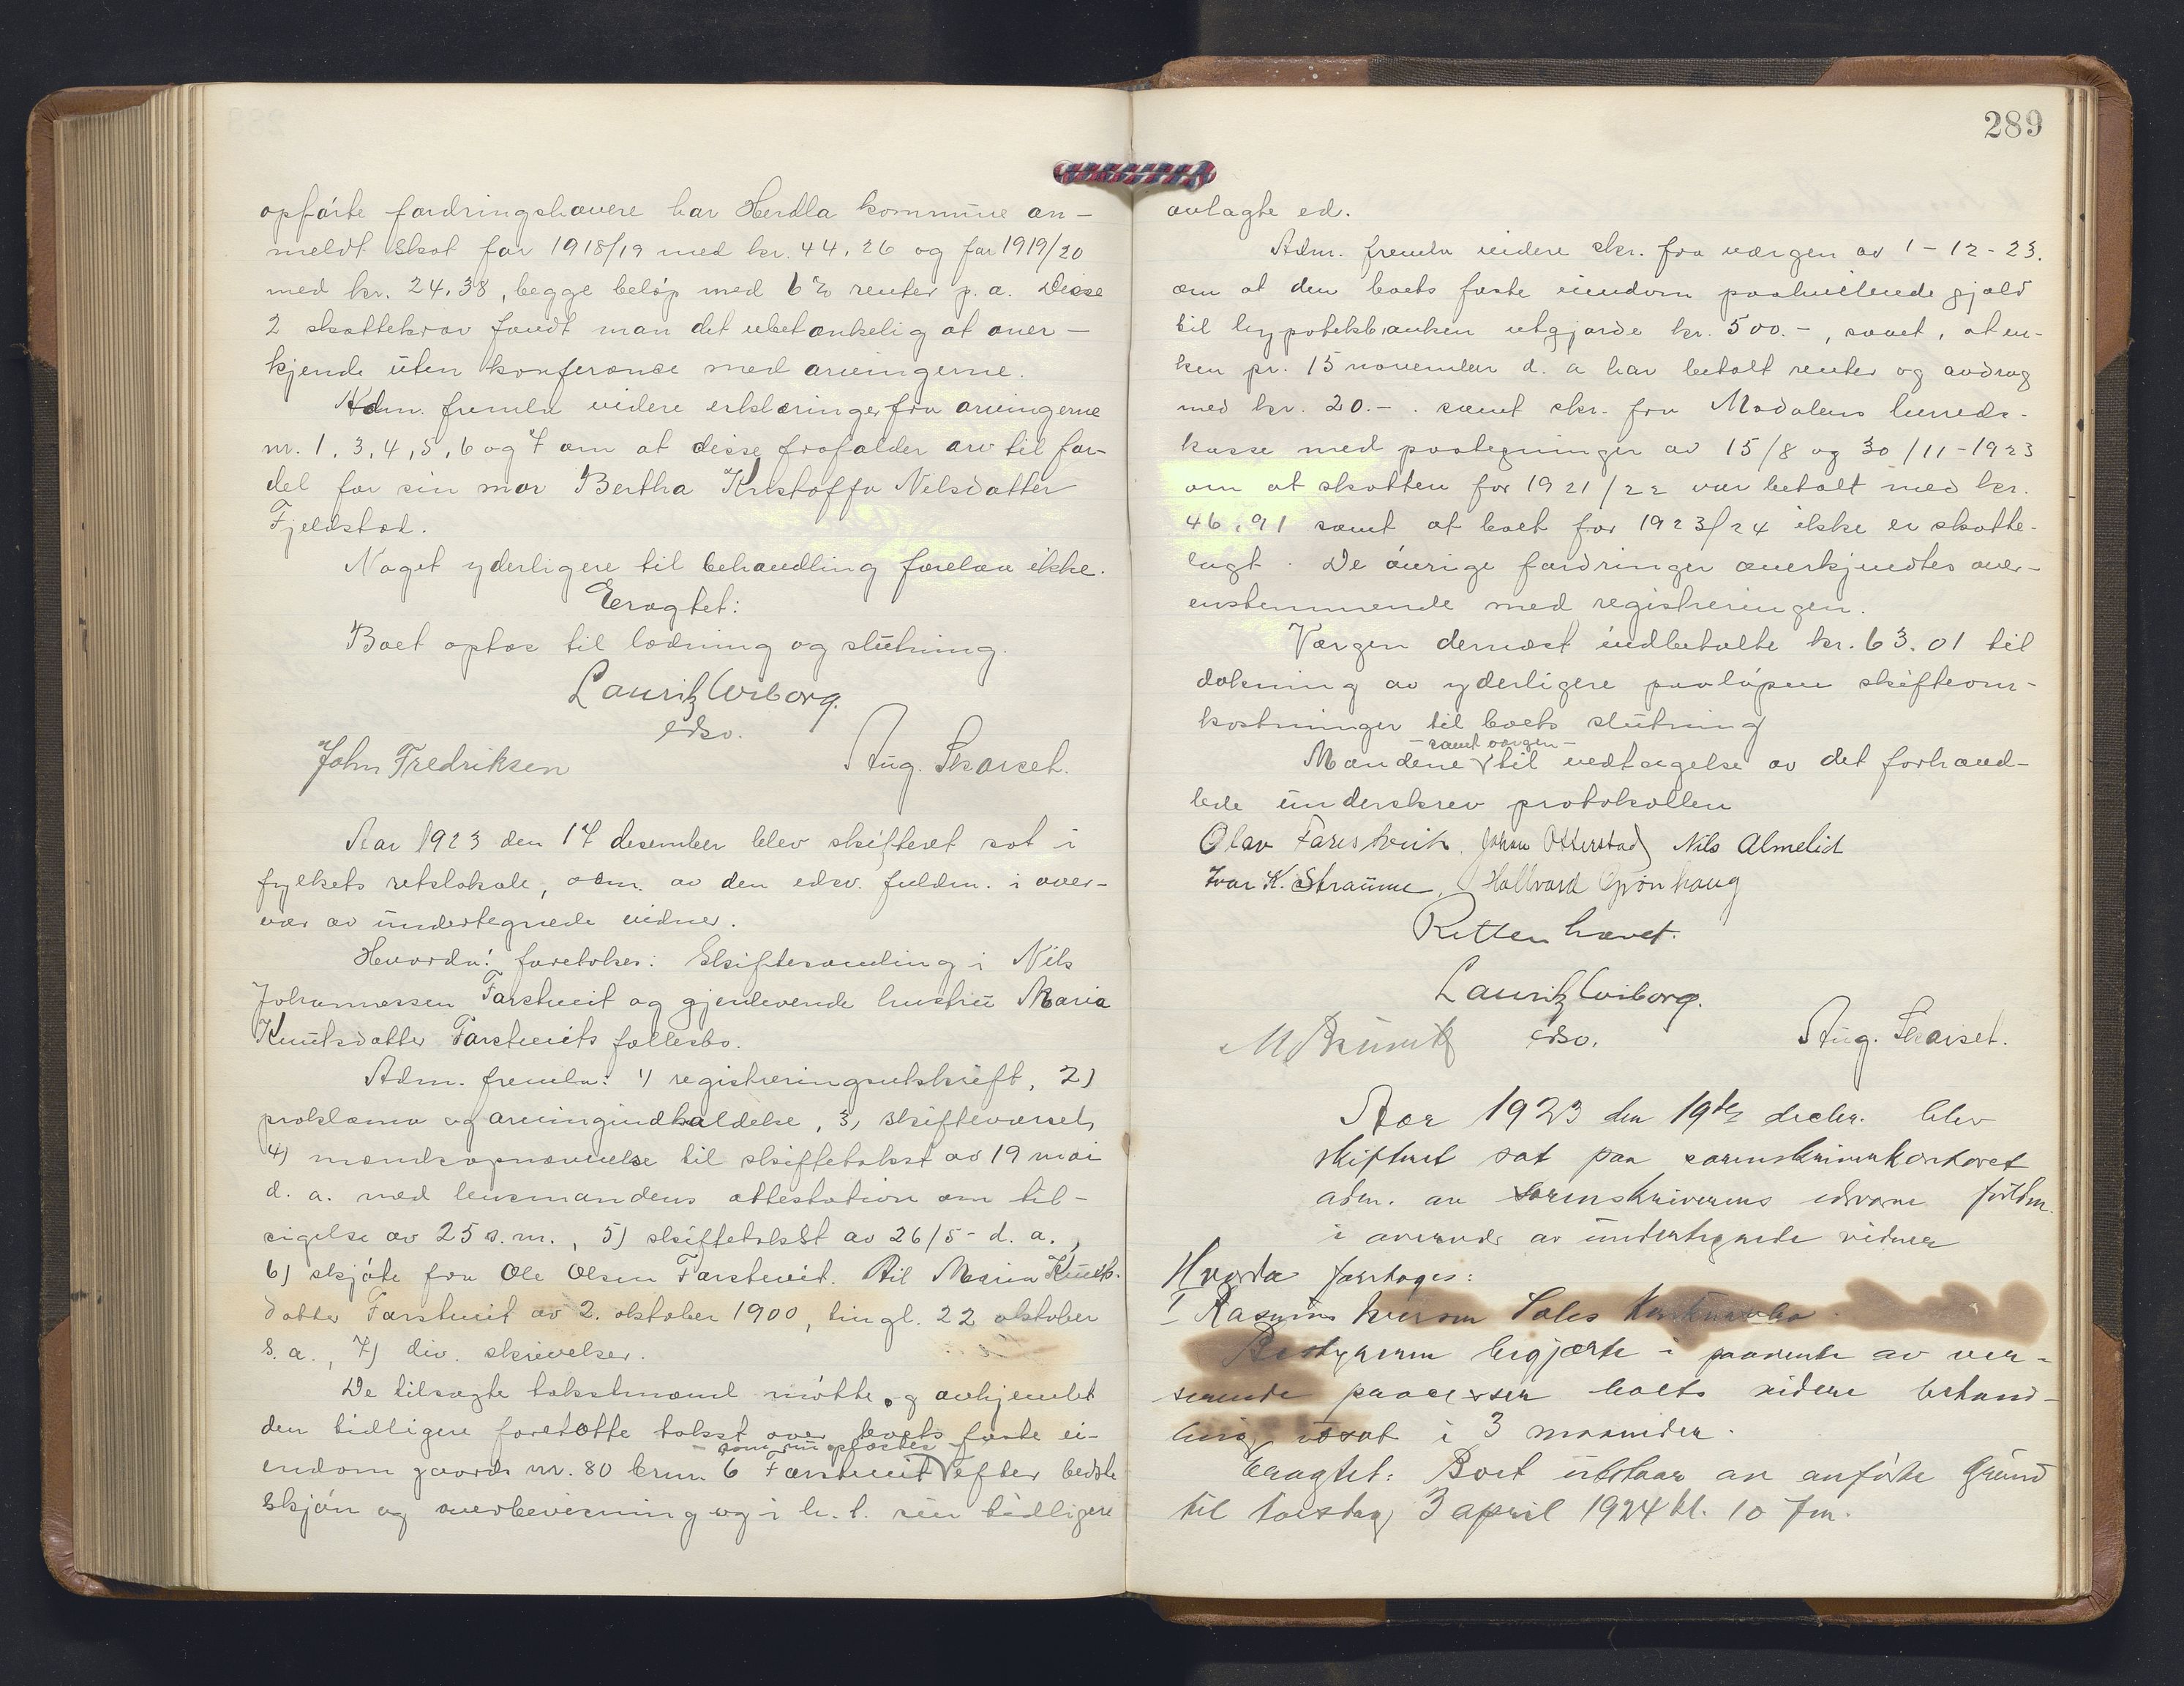 opførte fordringshavere har Herdla kommune an-
meldt skat for 1918/19 med kr. 44,26 og for 1919/20
med kr. 24,38, begge beløp med 6% renter p.a. Disse
2 skattekrav fandt man det ubetænkelig at aner-
kjende uten konferanse med arvingerne.
Adm. fremla videre erklæringer fra arvingerne
nr. 1, 3, 4, 5, 6 og 7 om at disse frafalder arv til for-
del for sin mor Bertha Kristoffa Nilsdatter
Fjeldstad.
Noget yderligere til behandling forelaa ikke.
Eragtet:
Boet optas til lodning og slutning.
Lauritz Wiborg.
edsv.
John Fredriksen Aug. Skarset.
Aar 1923 den 17 desember blev skifteret sat i
fylkets retslokale, adm. av den edsv. fuldm. i over-
vær av undertegnede vidner.
Hvorda: foretokes: Skiftesamling i Nils
Johannessen Farstveit og gjenlevende hustru Maria
Knutsdatter Farstveits fællesbo.
Adm. fremla: 1) registreringsutskrift, 2)
proklama og arvingindkaldelse, 3, skiftevarsel,
4) mændsopnævnelse til skiftetakst av 19 mai
d. a. med lensmandens attestation om til-
sigelse av 25 s.m., 5) skiftetakst av 26/5- d. a.,
6) skjøte fra Ole Olsen Farstveit til Maria Knuts-
datter Farstveit av 2. oktober 1900, tingl. 22 oktober
s.a., 7) div. skrivelser.
De tilsagte takstmænd møtte og avhjemlet
den tidligere foretatte takst over boets faste ei-
- som nu opføstes -
endom gaards nr. 80 brnr. 6 Farstveit efter bedste
skjøn og overbevisning og i h. t. sin tidligere
289
avlagte ed.
Adm. fremla videre skr. fra værgen av 1-12-23.
om at den boets faste eiendom paahvilende gjæld
til hypotekbanken utgjorde kr. 500.-, samt, at en-
ken pr. 15 november d. a har betalt renter og avdrag
med kr. 20.-. samt skr. fra Modalens herreds-
kasse med paategninger av 15/8 og 30/11-1923
om at skatten for 1921/22 var betalt med kr.
46,91 samt at boet for 1923/24 ikke er skatte-
lagt. De øvrige fordringer anerkjendtes over-
enstemmende med registreringen.
Værgen dernæst indbetalte kr. 63.01 til
dækning av yderligere paaløpne skifteom-
kostninger til boets slutning
- samt værgen -
Mændene til vedtagelse av det forhand-
lede underskrev protokollen
Olav Farestveit. Johan Otterstad Nils Almelid
Ivar K. Straume, Hallvard Grønhaug
Retten hævet.
Lauritz Wiborg.
edsv. Aug. Skarset.
Aar 1923 den 19de decbr. blev
skifteret sat paa sorenskriverkontoret
adm. av sorenskriverens edsvorne fuldm.
i overvær av undertegnede vidner
Hvorda foretoges:
I Rasmus Iversen Sales
Bestyreren begjærte i paavente av ver-
serende processer boets videre behand-
ling utsat i 3 maaneder.
Eragtet: Boet utstaar av anførte grund
til torsdag 3 april 1924 kl. 10 fm.